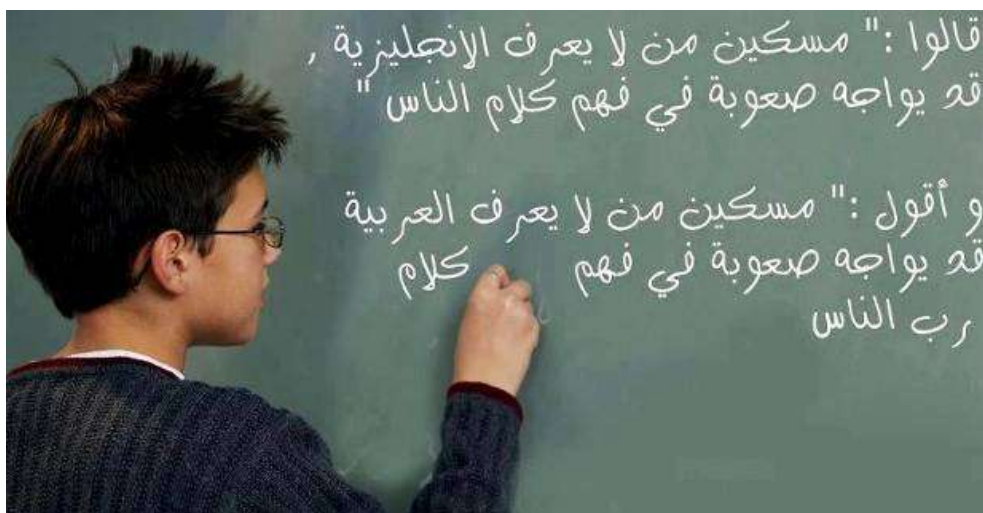 قالوا :" مسكين من لا يعرف الإنجليزية ,
قد يواجه صعوبة في فهم كلام الناس "
و أقول :" مسكين من لا يعرف العربية
قد يواجه صعوبة في فهم كلام
رب الناس